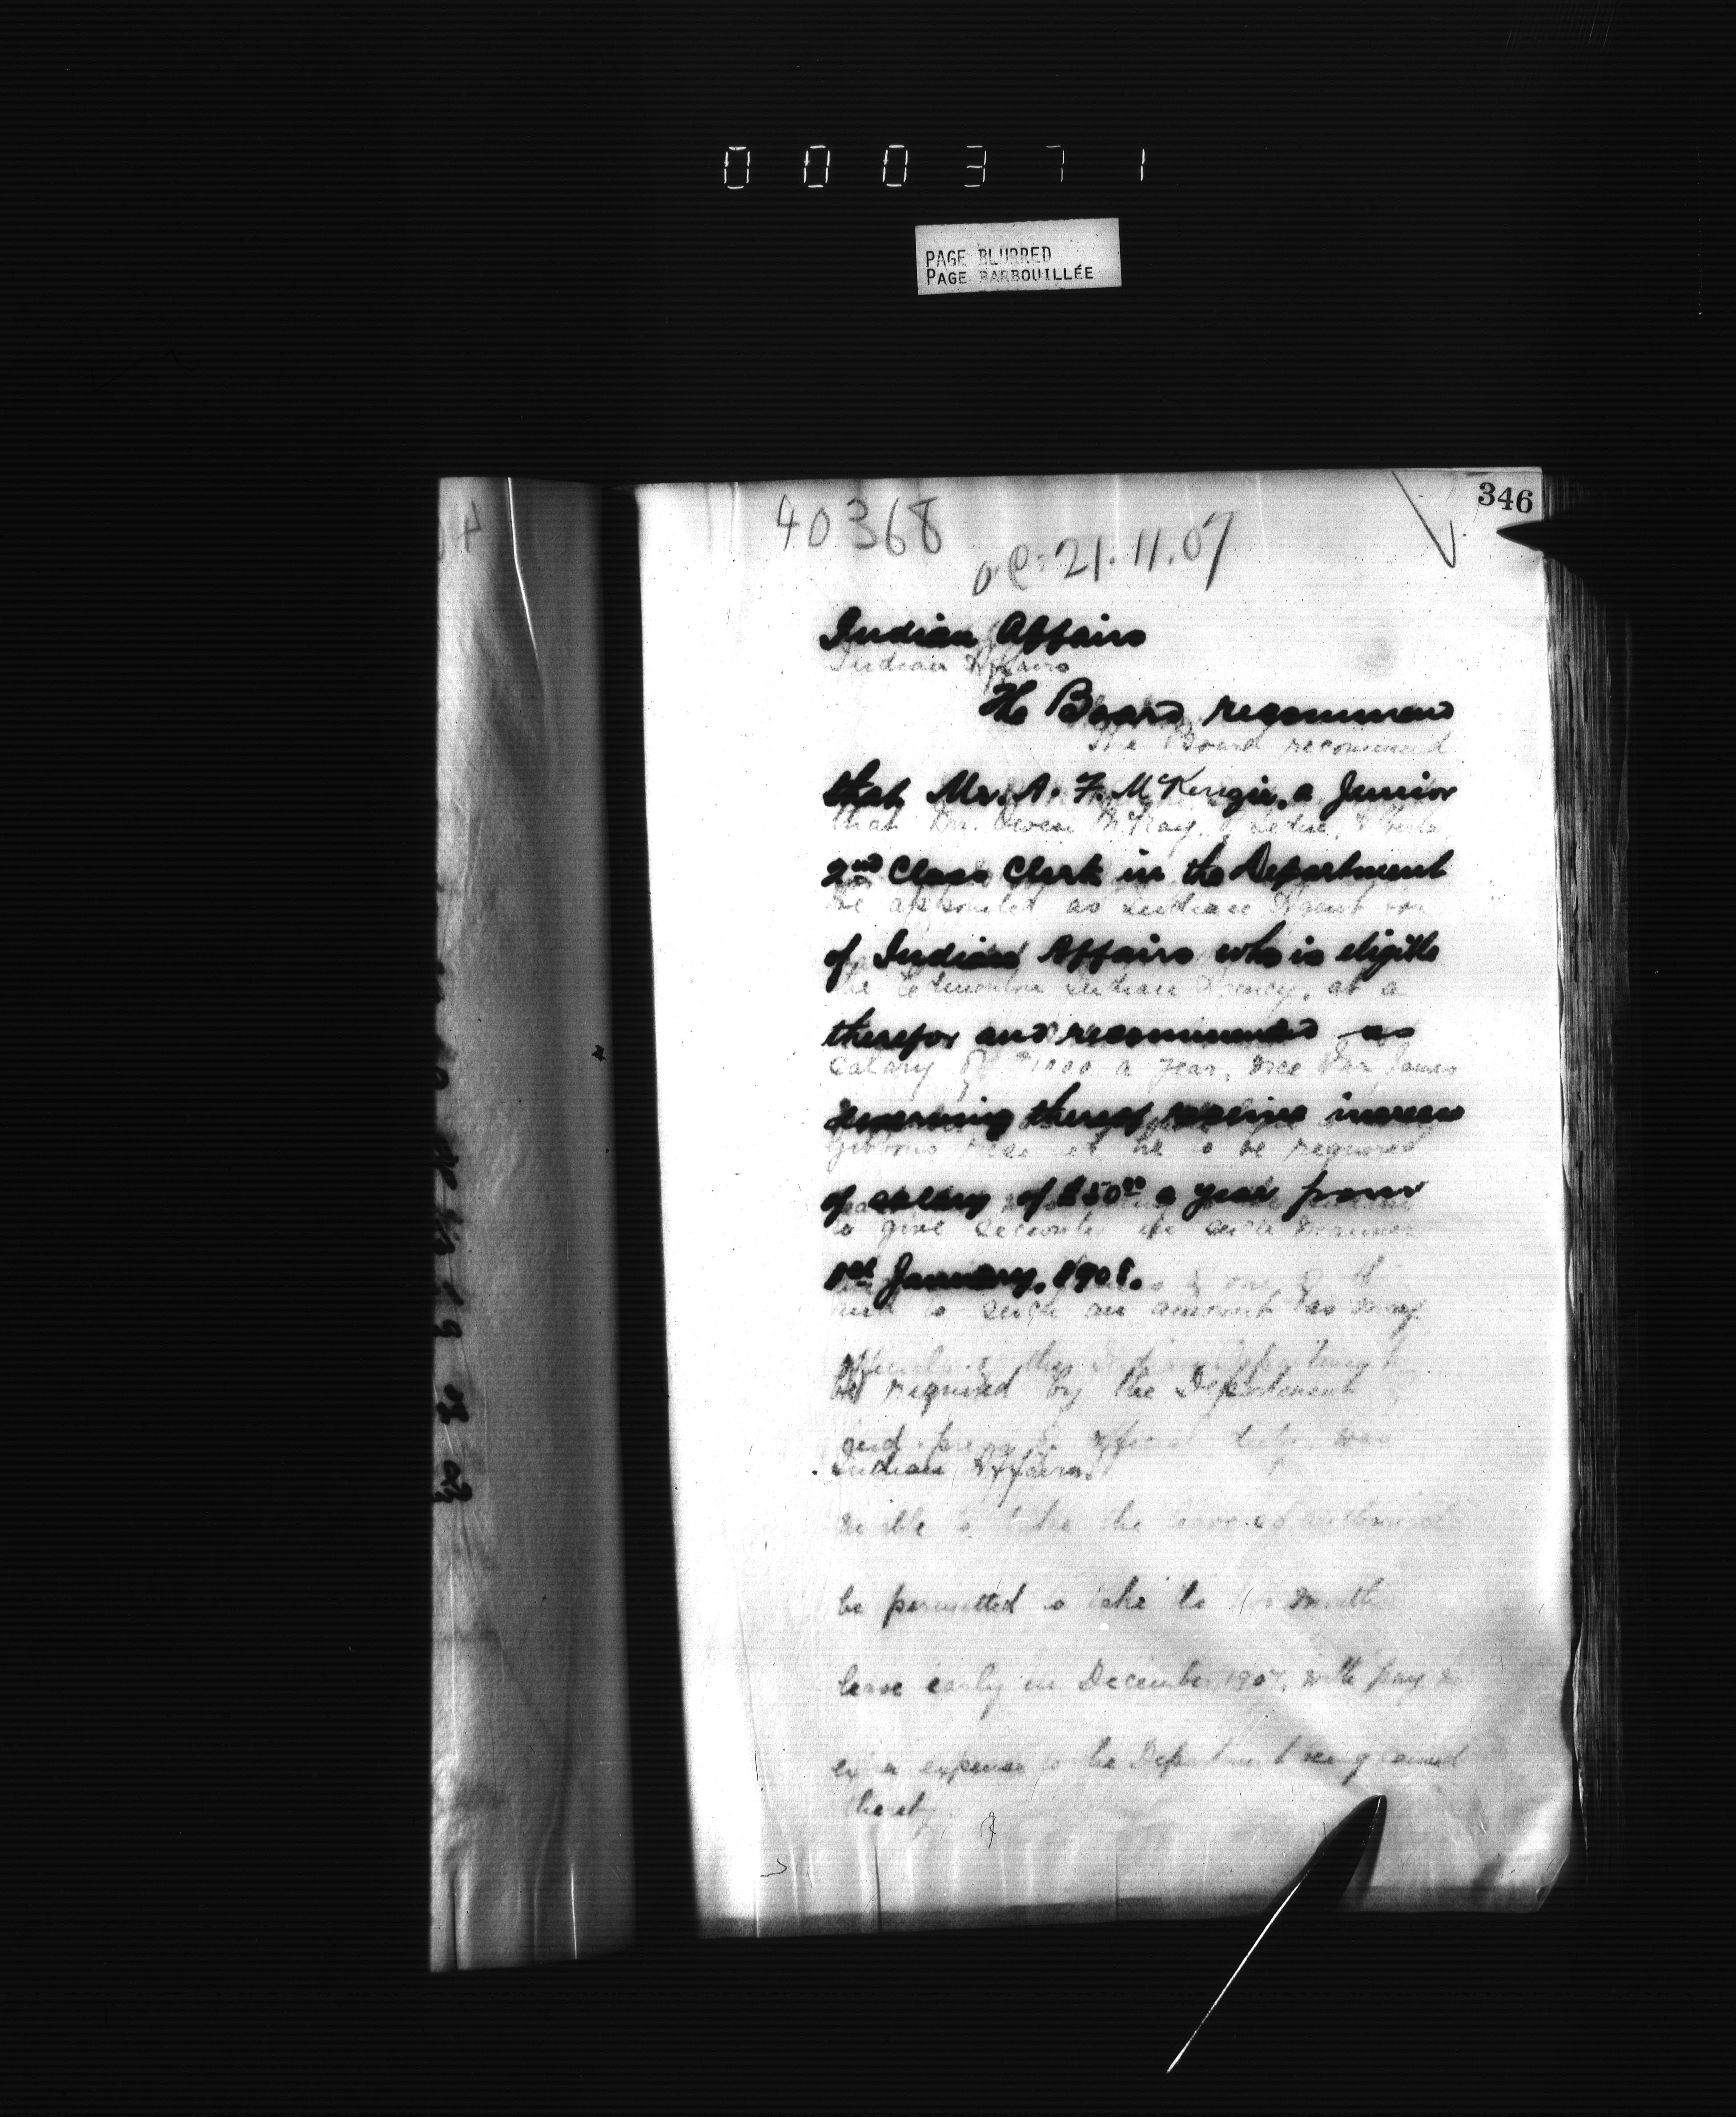 000371
PAGE BLURRED
PAGE BARBOUILLÉE
346
40368
O.C. 21.11.07
Indian Affairs
Indian Affairs
The Board recommend
The Board recommend
that Mr. A. F. McKenzie, a Junior
that Mr.
2nd Class Clerk in the Department
be appointed as Indian Agent for
of Indian Affairs who is eligible
the Edmonton Indian Agency, at a
therefor and recommended as
salary of $1000 a year, vice Mr James
deserving thereof receive increase
Gibbons he to be required
of salary of $50 00 a year from
to give security in such manner
1st January, 1908.
and to such an amount as may
the Indian Department
be required by the Department
official duty, was
Indian Affairs.
unable to take the leave authorized
be permitted to take months
leave early in December, 1907, with pay, no
extra expense to the Department being caused
thereby